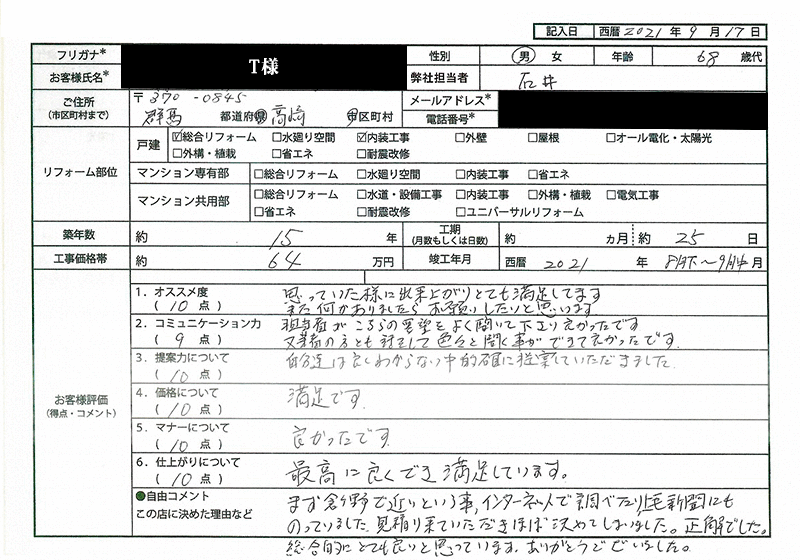 記入日 西暦 2021 年 9 月 17 日
フリガナ* T様 性別 男 女 年齢 68 歳代
お客様氏名* 弊社担当者 石井
ご住所 (市区町村まで) 〒370-0845 メールアドレス*
群馬 都道府県 高崎 市区町村 電話番号*
リフォーム部位
戸建 ☑総合リフォーム □水廻り空間 ☑内装工事 □外壁 □屋根 □オール電化・太陽光
□外構・植栽 □省エネ □耐震改修
マンション専有部 □総合リフォーム □水廻り空間 □内装工事 □省エネ
マンション共用部 □総合リフォーム □水道・設備工事 □内装工事 □外構・植栽 □電気工事
□省エネ □耐震改修 □ユニバーサルリフォーム
築年数 約 15 年 工期 (月数もしくは日数) 約 ヵ月 約 25 日
工事価格帯 約 64 万円 竣工年月 西暦 2021 年 8月下~9月中 月
お客様評価 (得点・コメント)
1.オススメ度 思っていた様に出来上がりとても満足してます
(10 点) また何かありましたらお願いしたいと思います
2.コミュニケーション力 担当者がこちらの要望をよく聞いて下さり良かったです
(9 点) 業者の方とも 色々と聞く事ができて良かったです.
3.提案力について 自分達は良くわからない中的確に提案していただきました.
(10 点)
4.価格について 満足です.
(10 点)
5.マナーについて 良かったです
(10 点)
6.仕上がりについて 最高に良くでき満足しています。
(10 点)
●自由コメント まず倉賀野で近いという事,インターネットで調べたり上毛新聞にも
この店に決めた理由など のっていました.見積り来ていただきほぼ決めてしまいました。正解でした。
総合的にとても良いと思っています.ありがとうございました。